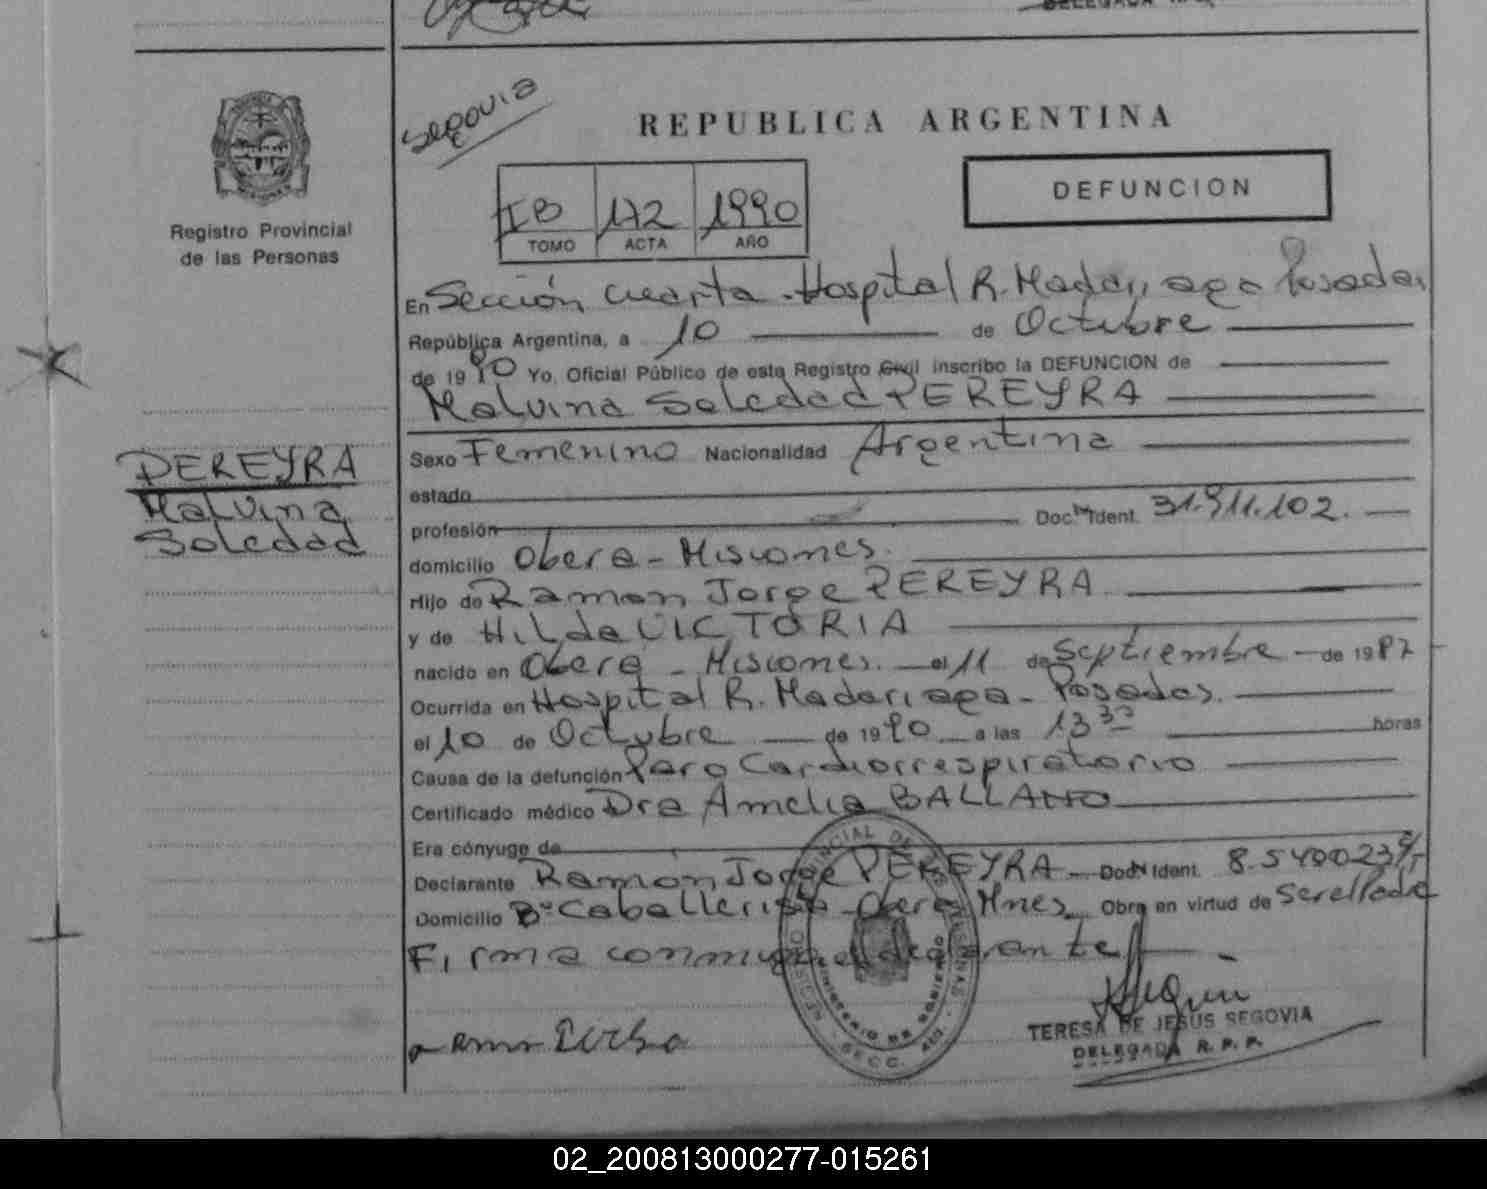 DELEGADA R.P.P.
Segovia
REPUBLICA ARGENTINA
Registro Provincial
de las Personas
IB 172 1990
TOMO ACTA AÑO
DEFUNCION
En Sección cuarta - Hospital R. Madariaga Posadas
República Argentina, a 10 de Octubre
de 1990 Yo, Oficial Público de este Registro Civil inscribo la DEFUNCION de
Malvina Soledad PEREYRA
Sexo Femenino Nacionalidad Argentina
PEREYRA
Malvina
Soledad
estado
profesión Doc. Ident. 31.911.102.
domicilio Obera - Misiones.
Hijo de Ramon Jorge PEREYRA
y de Hilda VICTORIA
nacido en Obera - Misiones. el 11 de Septiembre de 1987
Ocurrida en Hospital R. Madariaga - Posadas.
el 10 de Octubre de 1990 a las 13 30 horas
Causa de la defunción Paro Cardiorrespiratorio
Certificado médico Dra Amelia BALLANO
Era cónyuge de
Declarante Ramon Jorge PEREYRA Doc. Ident. 8.540023
Domicilio Bº Caballeriza - Obera Mnes Obra en virtud de ser el padre
Firma conmigo el declarante
TERESA DE JESUS SEGOVIA
DELEGADA R.P.P.
02_200813000277-015261